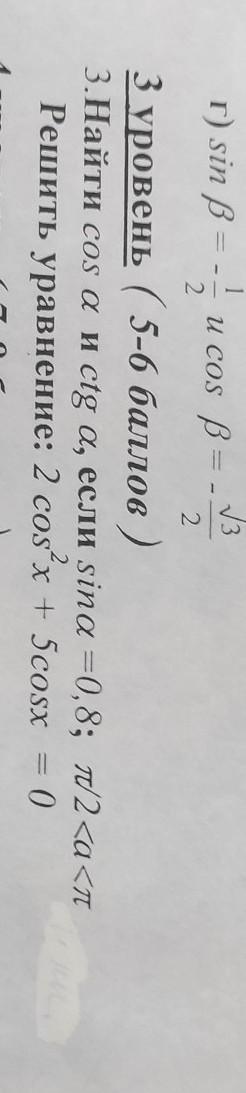 г) sin β = - 1/2 и cos β = - √3/2
3 уровень ( 5-6 баллов )
3.Найти cos α и ctg α, если sinα =0,8; π/2<a<π
Решить уравнение: 2 cos²x + 5cosx = 0